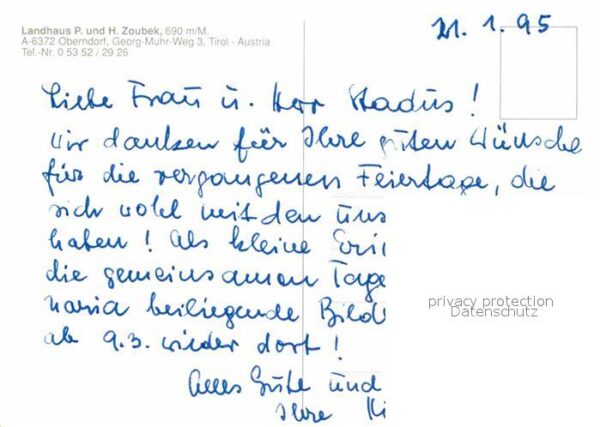 Landhaus P. und H. Zoubek, 690 m/M.
A-6372 Oberndorf, Georg-Muhr-Weg 3, Tirol · Austria
Tel.-Nr. 0 53 52 / 29 26
21. 1. 95
Liebe Frau u. Herr Stadus!
Wir danken für Ihre guten Wünsche
für die vergangenen Feiertage, die
sich wohl mit den uns
haben! Als kleine Eri
die gemeinsamen Tage
beiliegende Bild
ab 9.3. wieder dort!
Alles Gute und
Ihre
privacy protection
Datenschutz